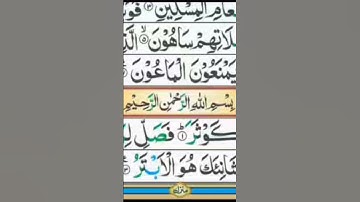 طَعَامِ الْمِسْكِيْنِ ۳ فَوَ
لَاتِهِمْ سَاهُوْنَ ۵ الَّذِ
يَمْنَعُوْنَ الْمَاعُوْنَ
بِسْمِ اللّٰهِ الرَّحْمٰنِ الرَّحِيْمِ
كَوْثَرَ ۱ فَصَلِّ لِ
شَانِئَكَ هُوَ الْاَبْتَرُ